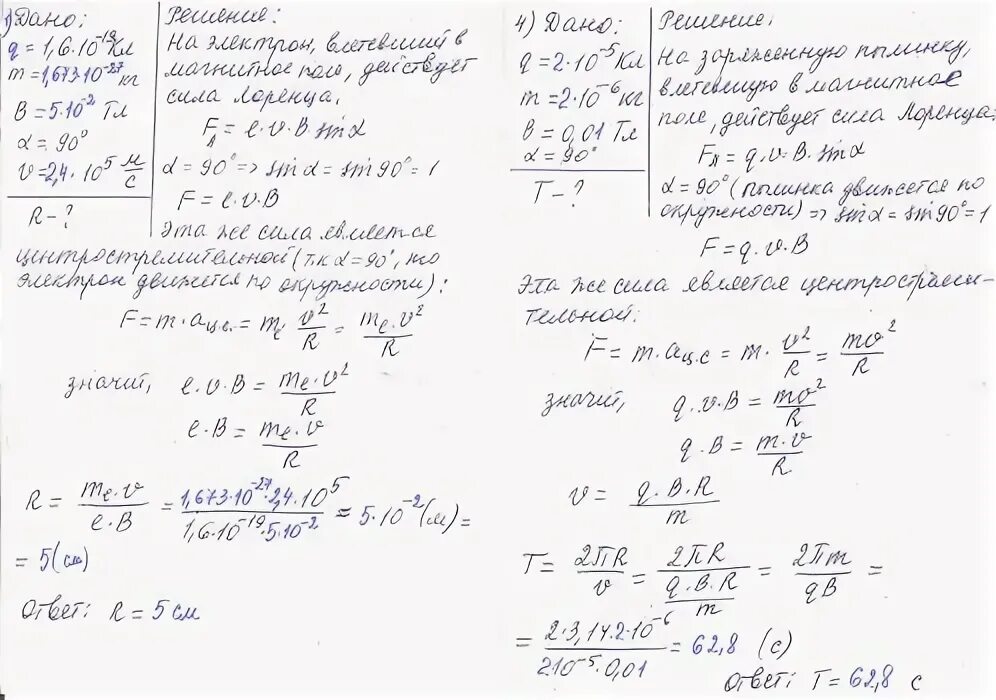 1) Дано:
q = 1,6·10⁻¹⁹ Кл
m = 1,673·10⁻²⁷ кг
B = 5·10⁻² Тл
α = 90°
v = 2,4·10⁵ м/с
R – ?
Решение:
На электрон, влетевший в
магнитное поле, действует
сила Лоренца.
Fл = e·v·B·sinα
α = 90° => sinα = sin90° = 1
F = e·v·B
Эта же сила является
центростремительной (т.к α = 90°, то
электрон движется по окружности):
F = m·aц.с. = mₑ v²/R = mₑ·v²/R
значит, e·v·B = mₑ·v²/R
e·B = mₑ·v/R
R = mₑ·v/e·B = 1,673·10⁻²⁷·2,4·10⁵/1,6·10⁻¹⁹·5·10⁻² ≈ 5·10⁻² (м) =
= 5 (см)
Ответ: R = 5 см
4) Дано:
q = 2·10⁻⁵ Кл
m = 2·10⁻⁶ кг
B = 0,01 Тл
α = 90°
T – ?
Решение:
На заряженную пылинку,
влетевшую в магнитное
поле, действует сила Лоренца:
Fл = q·v·B·sinα
α = 90° (пылинка движется по
окружности) => sinα = sin90° = 1
F = q·v·B
Эта же сила является центростреми-
тельной:
F = m·aц.с = m· v²/R = mv²/R
значит, q·v·B = mv²/R
q·B = m·v/R
v = q·B·R/m
T = 2πR/v = 2πR/(q·B·R/m) = 2πm/qB =
= 2·3,14·2·10⁻⁶/2·10⁻⁵·0,01 = 62,8 (с)
Ответ: T = 62,8 с